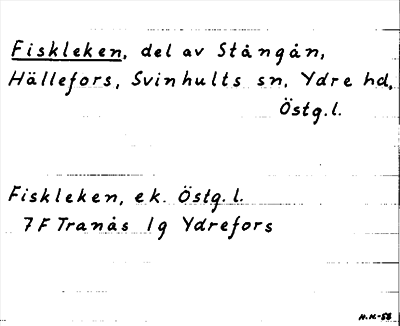 Fiskleken, del av Stångån,
Hällefors, Svinhults sn, Ydre hd,
Östg. l.
Fiskleken, ek. Östg. l.
7 F Tranås 1g Ydrefors
H.K-88